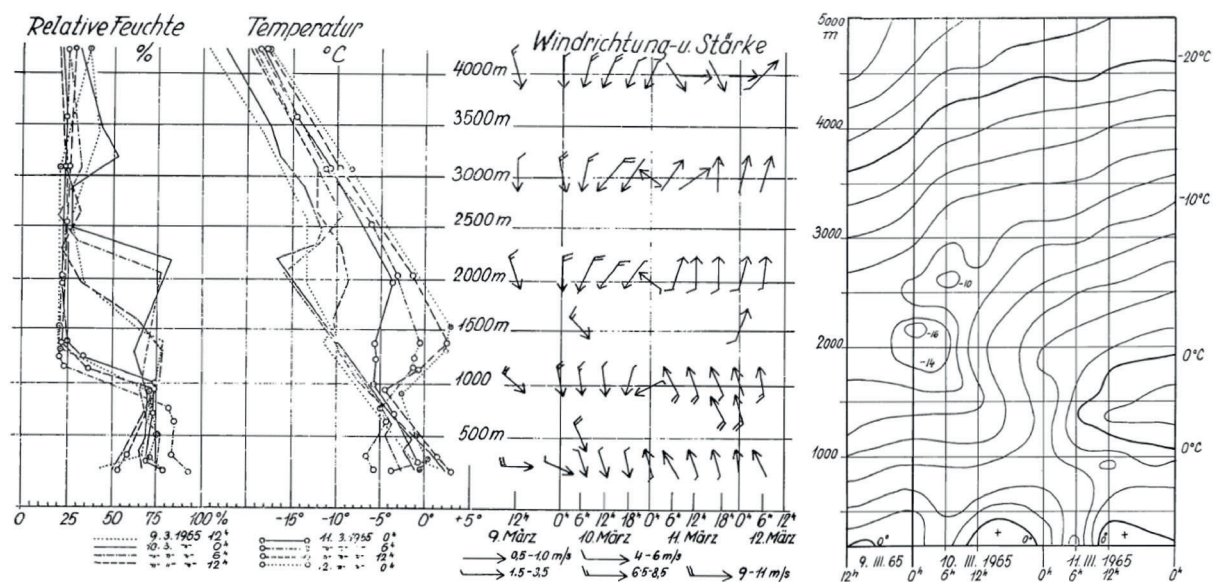 Relative Feuchte
%
Temperatur
°C
Windrichtung-u. Stärke
4000m
3500m
3000m
2500m
2000m
1500m
1000
500m
0 25 50 75 100 %
-15° -10° -5° 0° +5°
12ʰ 0ʰ 6ʰ 12ʰ 18ʰ 0ʰ 6ʰ 12ʰ 18ʰ 0ʰ 6ʰ 12ʰ
9. März 10. März 11. März 12. März
9.3.1965 12ʰ
10.3. " " 0ʰ
" " " 6ʰ
" " " 12ʰ
11.3.1965 0ʰ
" " " 6ʰ
" " " 12ʰ
0ʰ
0,5-1.0 m/s
1.5-3.5
4-6 m/s
6.5-8,5
9-11 m/s
5000
m
4000
3000
2000
1000
-20°C
-10°C
0°C
0°C
-10
-16
-14
0°
+
0°
+
12ʰ 9. III. 65 0ʰ 6ʰ 10. III. 1965 12ʰ 0ʰ 6ʰ 11. III. 1965 12ʰ 0ʰ